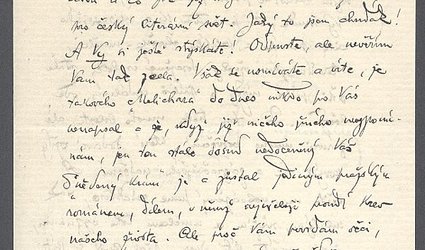 pro český literární svět. Jaký to jsem chudák!
A Vy si ještě stýskáte! Odpusťte, ale nevěřím
Vám tak zcela. Však se usmíváte a víte, že
takového Melichara do dnes nikdo po Vás
nenapsal a že, když již ničeho jiného nevzpomí-
nám, jen ten stále dosud nedoceněný Váš
"Snědený krám" je a zůstal jediným pražským
romanem, dílem, v němž nejsvětleji proudí krev
našeho života. Ale proč Vám povídám věci,